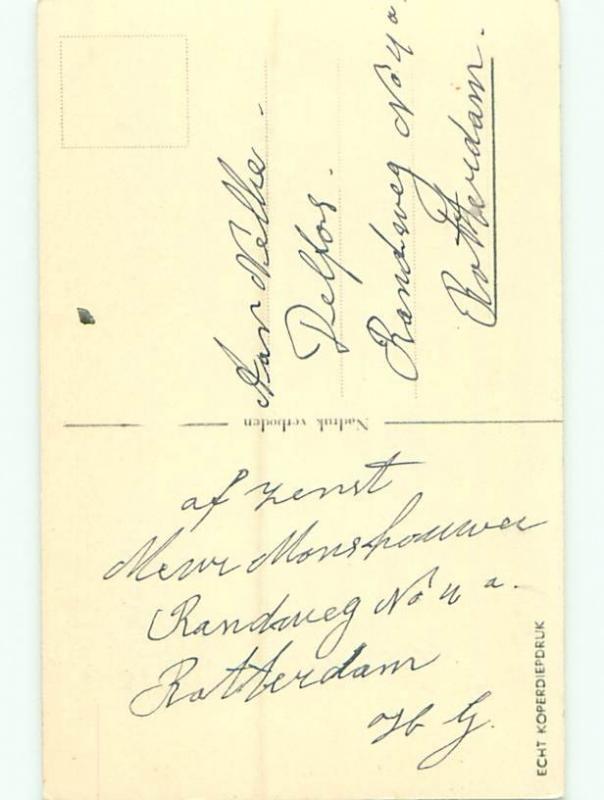 Aan Nellie.
Delfos.
Randweg No 4 a.
Rotterdam.
Nadruk verboden
af zenst
Mevr Monshouwer
Randweg No 4 a.
Rotterdam
G.
ECHT KOPERDIEPDRUK